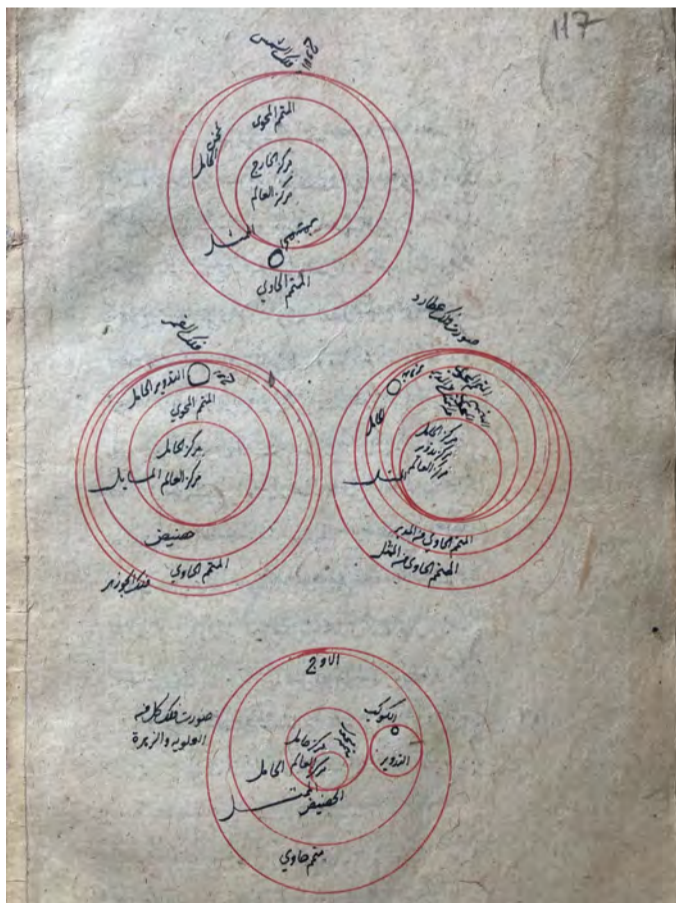 117
فلك الشمس
اوج
المتمم المحوي
الخارج
الحامل
مركز الخارج
مركز العالم
الممثل
شمس
المتمم الحاوي
فلك القمر
اوج
التدوير الحامل
المتمم المحوي
مركز الحامل
مركز العالم المايل
حضيض
المتمم الحاوي
فلك الجوزهر
صورت فلك عطارد
حامل
مركز الحامل
مركز مدير
مركز العالم
الممثل
المتمم الحاوي من المدير
المتمم الحاوي من الممثل
الاوج
صورت فلك كل من
العلويه والزهرة
الكوكب
التدوير
مركز حامل
مركز العالم
الحامل
الحضيض
الممثل
متمم حاوي